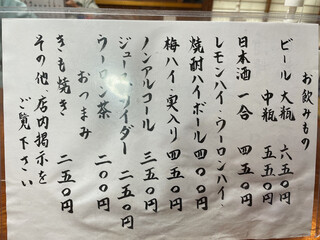 お飲みもの
ビール 大瓶 六五〇円
中瓶 五五〇円
日本酒 一合 四五〇円
レモンハイ・ウーロンハイ・
焼酎ハイボール 四〇〇円
梅ハイ・実入り 四五〇円
ノンアルコール 三五〇円
ジュース・サイダー 二五〇円
ウーロン茶
おつまみ
きも焼き 二五〇円
その他、店内掲示を
ご覧下さい